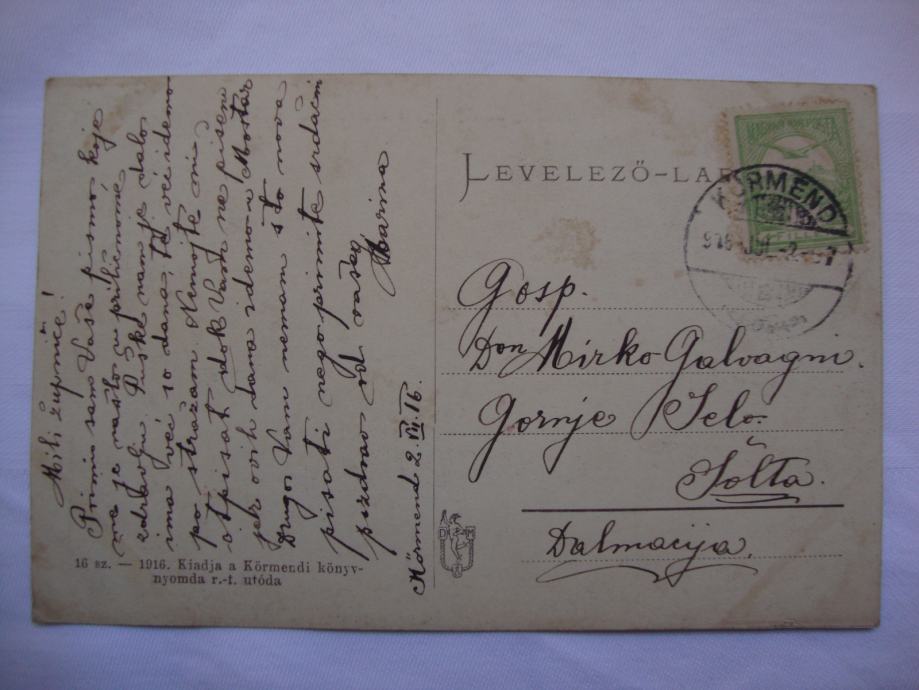 Mili župniče!
Primio sam Vaše pismo koje
me je našlo u
zdravlju. Puške nam je dalo
ima već 10 dana, pa već idemo
po stražam. Nemojte mi
otpisat dok Vam ne pišem
jer ovih dana idemo u Mostar
Drugo Vam nemam što nova
pisati nego primite srdačni
pozdrav od vašeg
Marina
Körmend 2. VII. 16.
16 sz. — 1916. Kiadja a Körmendi könyv-
nyomda r.-t. utóda
LEVELEZŐ-LAP
MAGYAR KIR. POSTA
KÖRMEND
916
D H
Gosp.
Don Mirko Galvagni.
Gornje Selo.
Šolta.
Dalmacija.